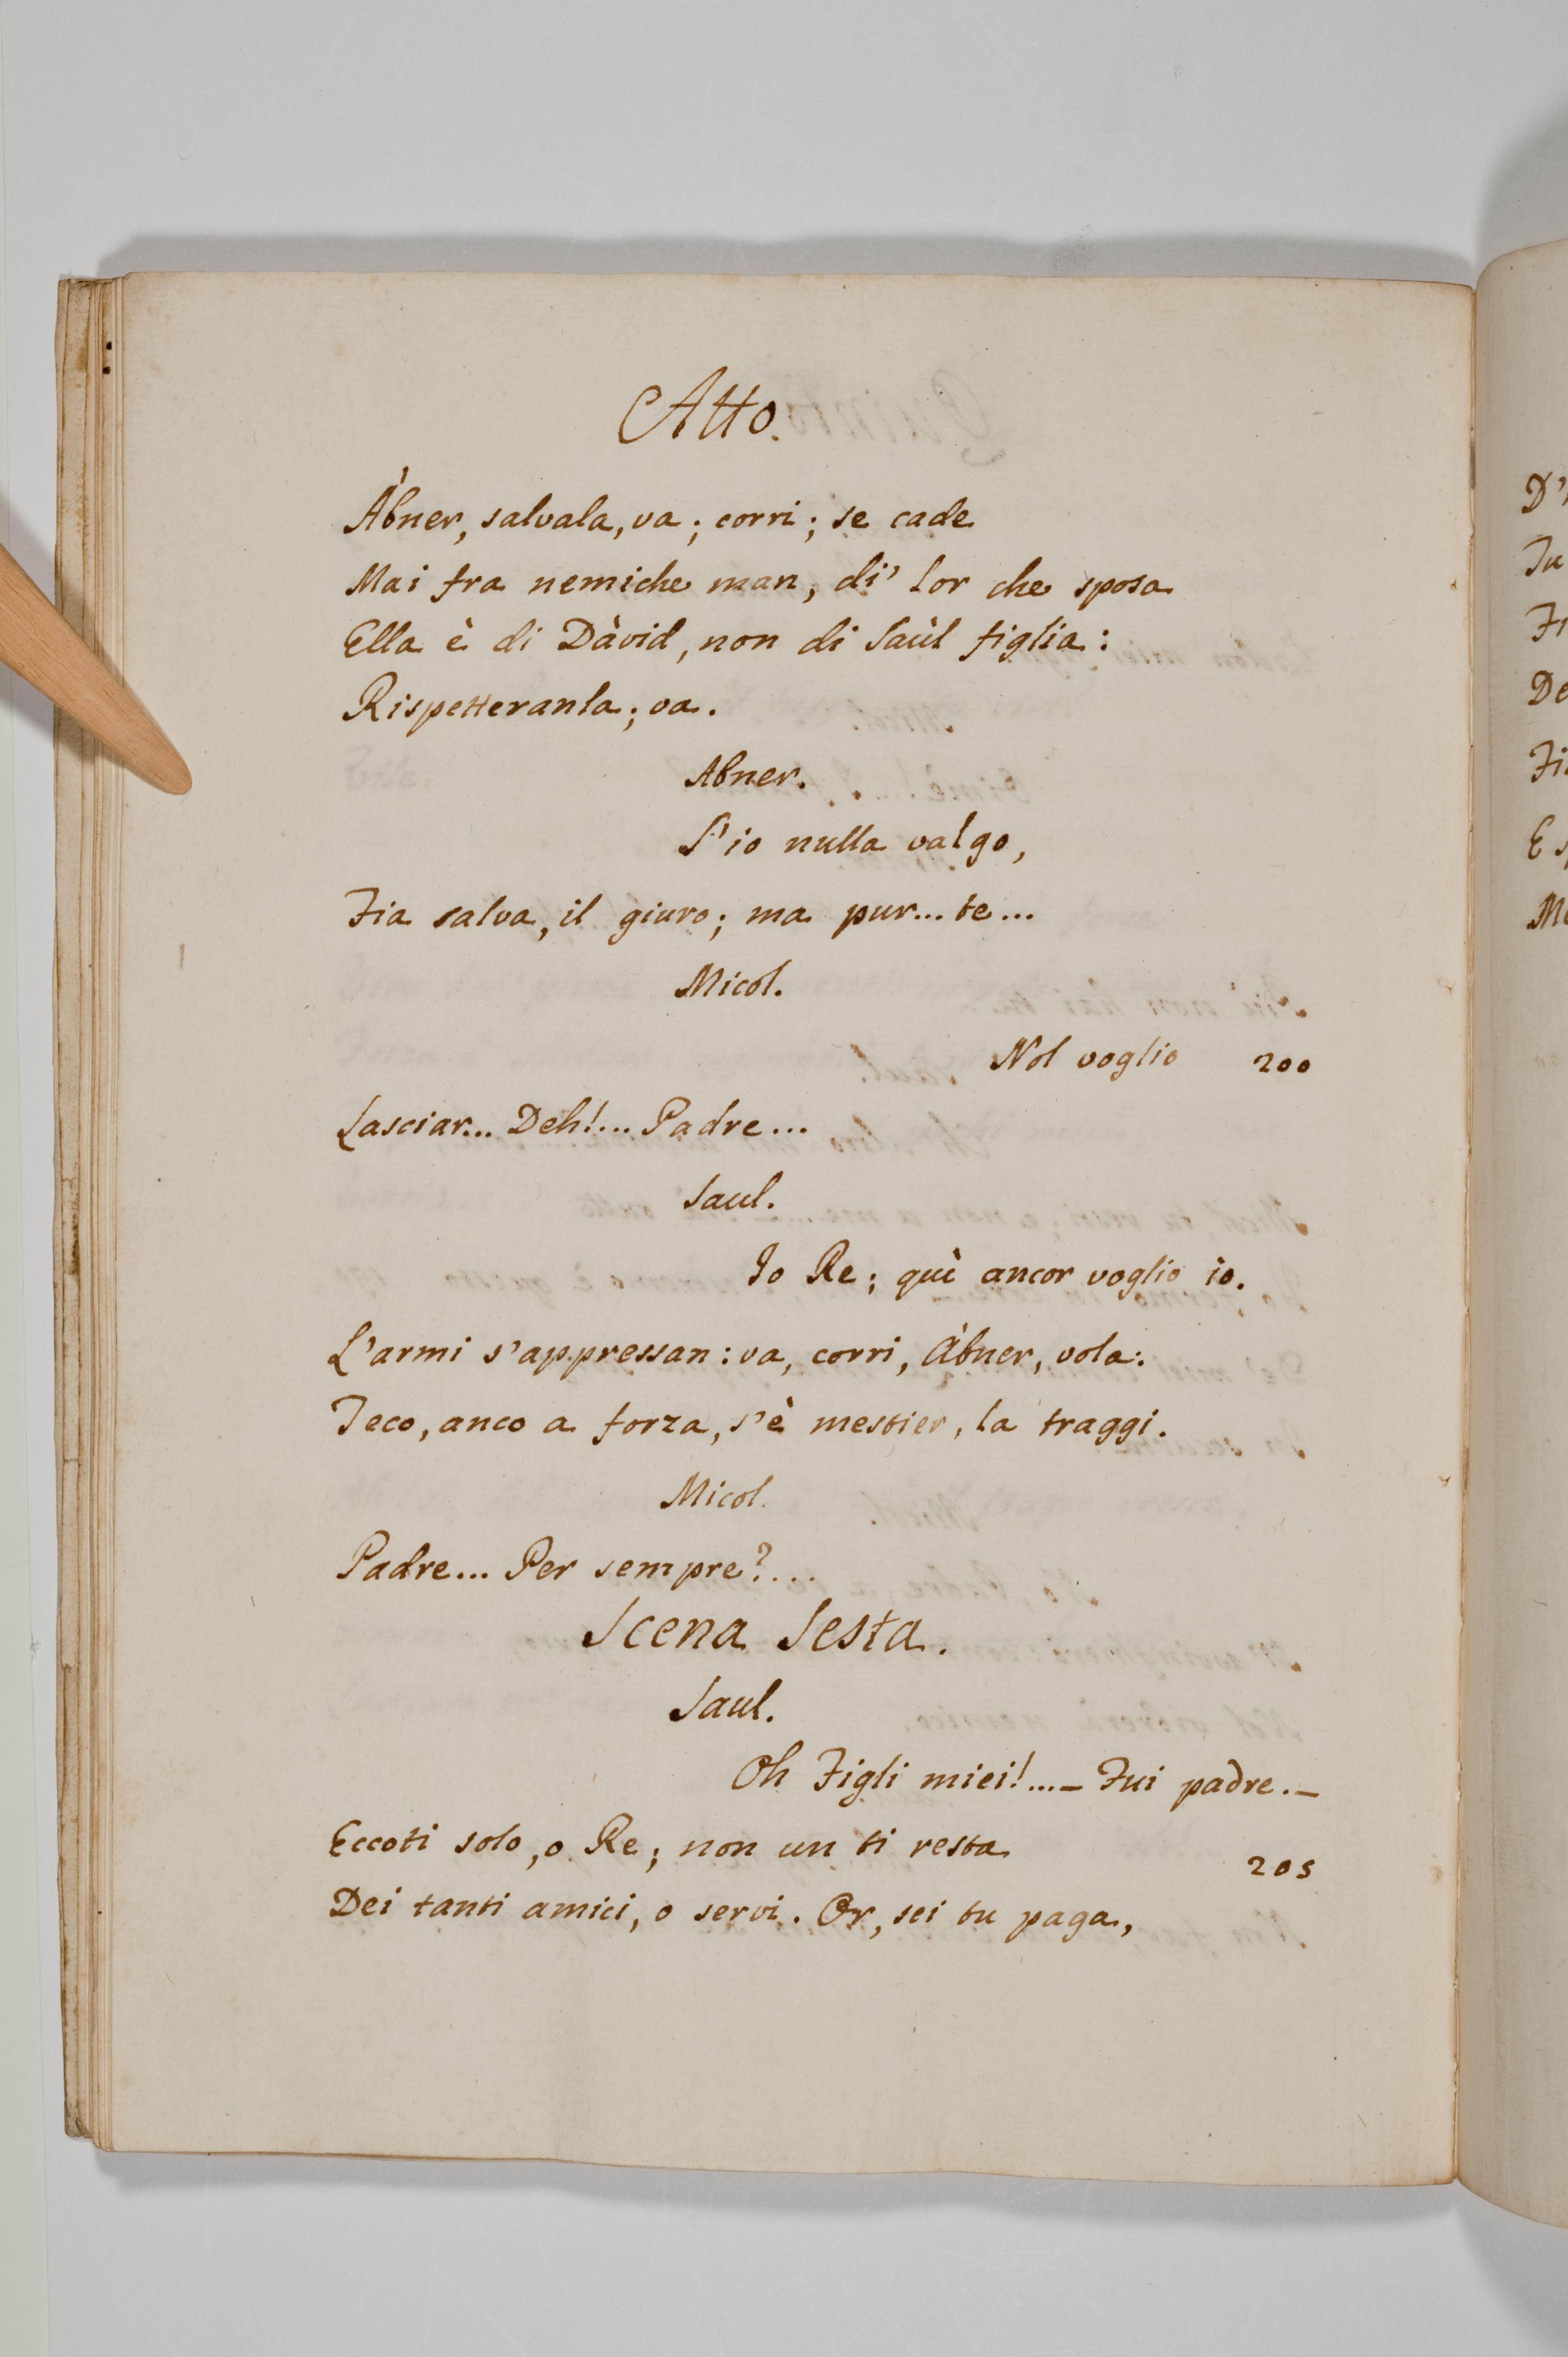 Atto.
Àbner, salvala, va; corri; se cade
Mai fra nemiche man, di' lor che sposa
Ella è di Dàvid, non di Saùl figlia:
Rispetteranla; va.
Abner.
S'io nulla valgo,
Fia salva, il giuro; ma pur... te...
Micol.
Nol voglio 200
Lasciar... Deh!... Padre...
Saul.
Io Re; quì ancor voglio io.
L'armi s'appressan: va, corri, Àbner, vola:
Teco, anco a forza, s'è mestier, la traggi.
Micol.
Padre... Per sempre?...
Scena Sesta.
Saul.
Oh Figli miei!...– Fui padre.–
Eccoti solo, o Re; non un ti resta 205
Dei tanti amici, o servi. Or, sei tu paga,
D'
Tu
De
E